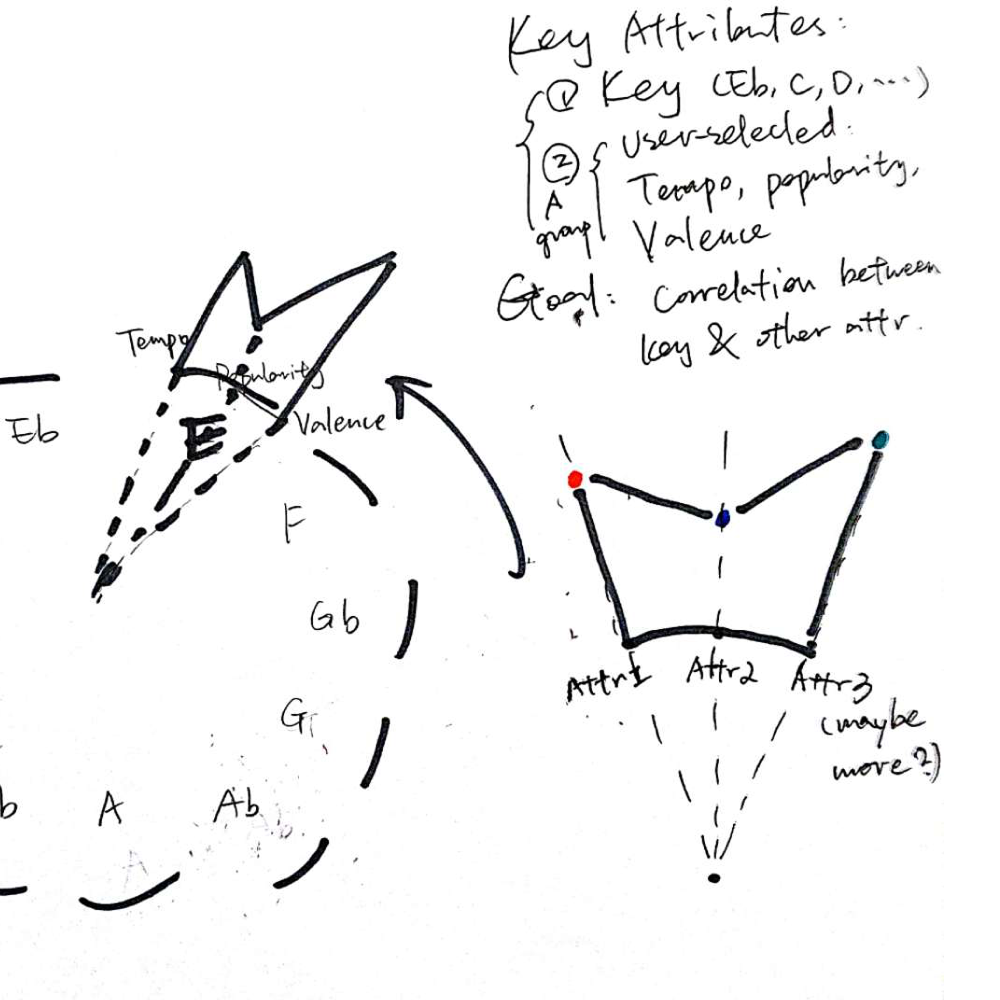 Key Attributes:
① Key (Eb, C, D, ...)
② A group
User-selected:
Tempo, popularity,
Valence
Goal: Correlation between
key & other attr.
Tempo
Popularity
Valence
Eb
E
F
Gb
G
Ab
A
b
Attr1 Attr2 Attr3
(maybe
more?)